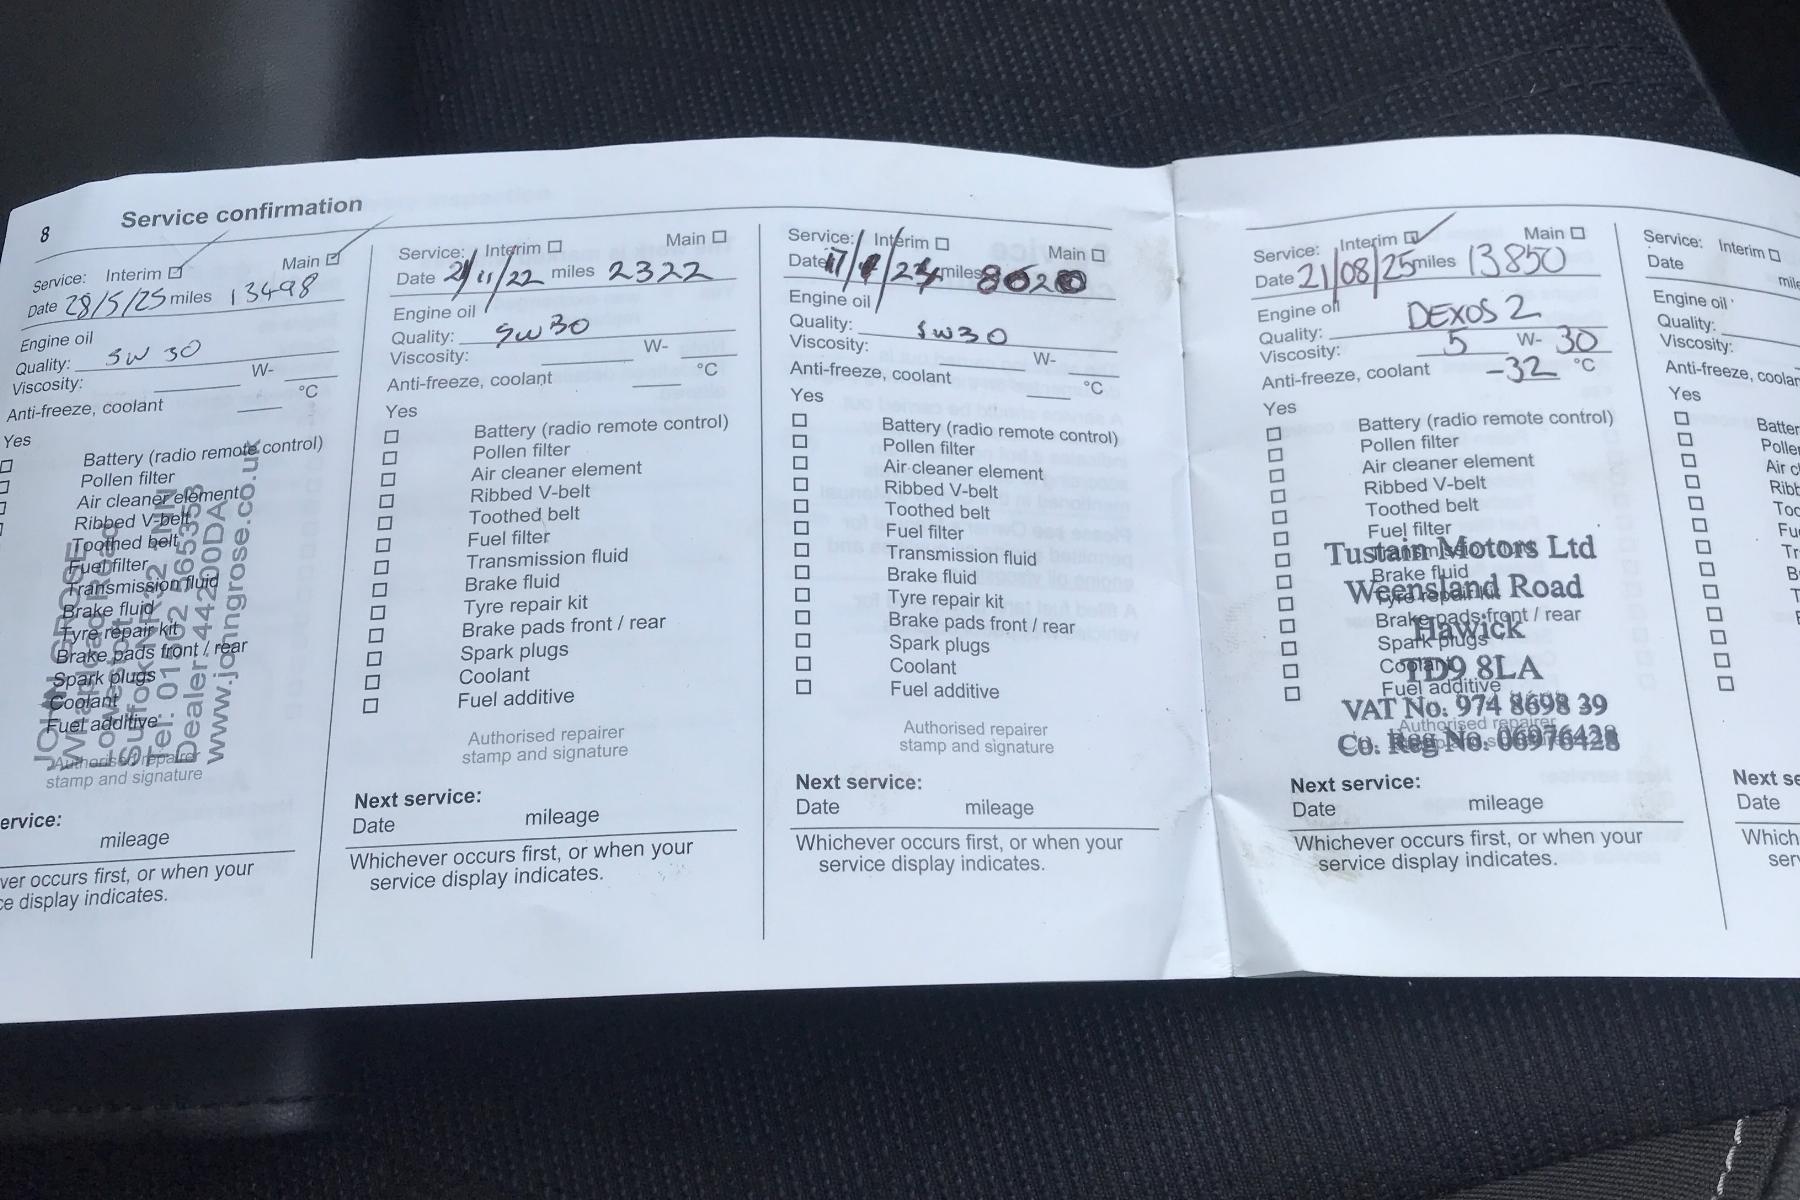 8
Service confirmation
Service: Interim ☑ Main ☑
Date 28/5/25 miles 13498
Engine oil
Quality: 5W 30
Viscosity: W-
Anti-freeze, coolant °C
Yes
Battery (radio remote control)
Pollen filter
Air cleaner element
Ribbed V-belt
Toothed belt
Fuel filter
Transmission fluid
Brake fluid
Tyre repair kit
Brake pads front / rear
Spark plugs
Coolant
Fuel additive
JOHN GROSE
Whapload Road
Lowestoft
Suffolk NR32 1NN
Tel: 01502 565353
Dealer 444200DA
www.johngrose.co.uk
Authorised repairer
stamp and signature
ervice:
mileage
ver occurs first, or when your
ce display indicates.
Service: Interim ☐ Main ☐
Date 21/11/22 miles 2322
Engine oil
Quality: 5W30
Viscosity: W-
Anti-freeze, coolant °C
Yes
Battery (radio remote control)
Pollen filter
Air cleaner element
Ribbed V-belt
Toothed belt
Fuel filter
Transmission fluid
Brake fluid
Tyre repair kit
Brake pads front / rear
Spark plugs
Coolant
Fuel additive
Authorised repairer
stamp and signature
Next service:
Date mileage
Whichever occurs first, or when your
service display indicates.
Service: Interim ☐ Main ☐
Date miles
Engine oil
Quality: 5W30
Viscosity: W-
Anti-freeze, coolant °C
Yes
Battery (radio remote control)
Pollen filter
Air cleaner element
Ribbed V-belt
Toothed belt
Fuel filter
Transmission fluid
Brake fluid
Tyre repair kit
Brake pads front / rear
Spark plugs
Coolant
Fuel additive
Authorised repairer
stamp and signature
Next service:
Date mileage
Whichever occurs first, or when your
service display indicates.
Service: Interim ☑ Main ☐
Date 21/08/25 miles 13850
Engine oil
Quality: DEXOS 2
Viscosity: 5 W- 30
Anti-freeze, coolant -32 °C
Yes
Battery (radio remote control)
Pollen filter
Air cleaner element
Ribbed V-belt
Toothed belt
Fuel filter
Transmission fluid
Brake fluid
Tyre repair kit
Brake pads front / rear
Spark plugs
Coolant
Fuel additive
Tustain Motors Ltd
Weensland Road
Hawick
TD9 8LA
VAT No. 974 8698 39
Co. Reg No. 06976428
Authorised repairer
Next service:
Date mileage
Whichever occurs first, or when your
service display indicates.
Service: Interim ☐
Date mile
Engine oil
Quality:
Viscosity:
Anti-freeze, coolan
Yes
Batter
Polle
Air cl
Ribb
Too
Fu
Tr
B
T
Next se
Date
Which
ser